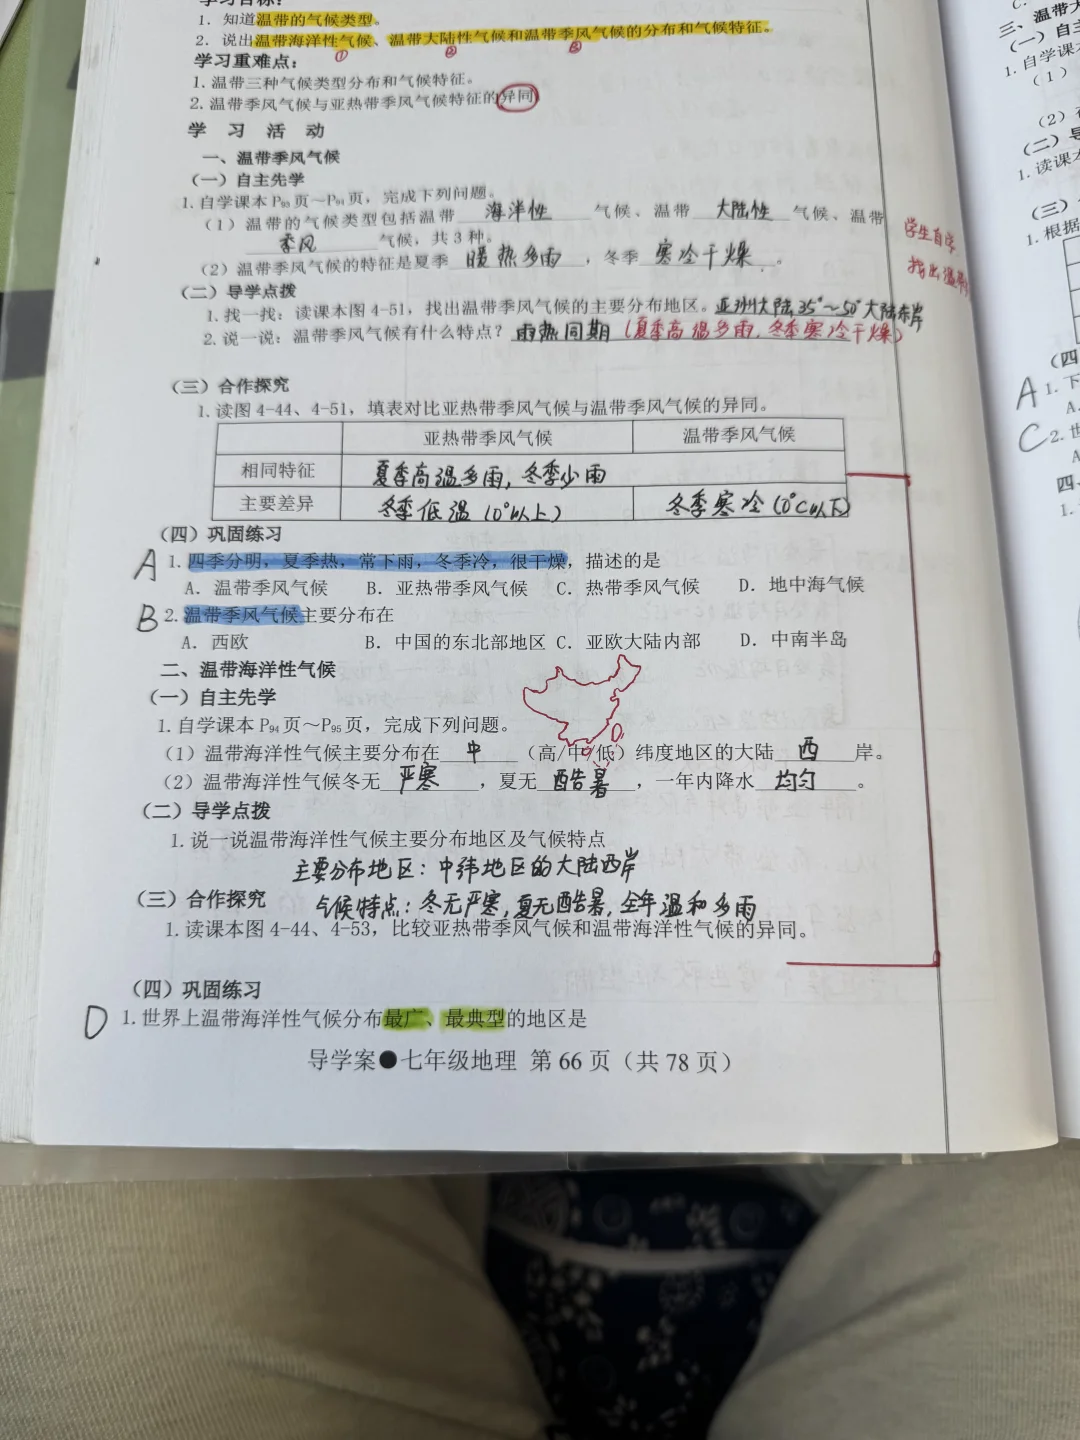 学习目标：
1．知道温带的气候类型。
2．说出温带海洋性气候、温带大陆性气候和温带季风气候的分布和气候特征。
① ② ③
学习重难点：
1．温带三种气候类型分布和气候特征。
2．温带季风气候与亚热带季风气候特征的异同
学 习 活 动
一、温带季风气候
（一）自主先学
1.自学课本P93页～P94页，完成下列问题。
（1）温带的气候类型包括温带 海洋性 气候、温带 大陆性 气候、温带
季风 气候，共3种。
（2）温带季风气候的特征是夏季 暖热多雨，冬季 寒冷干燥。
学生自学
找出温带
（二）导学点拨
1.找一找：读课本图4-51，找出温带季风气候的主要分布地区。亚洲大陆35°～50°大陆东岸
2.说一说：温带季风气候有什么特点？雨热同期（夏季高温多雨,冬季寒冷干燥）
（三）合作探究
1.读图4-44、4-51，填表对比亚热带季风气候与温带季风气候的异同。
亚热带季风气候 温带季风气候
相同特征 夏季高温多雨,冬季少雨
主要差异 冬季低温（0°以上） 冬季寒冷（0°C以下）
（四）巩固练习
A 1.四季分明，夏季热，常下雨，冬季冷，很干燥，描述的是
A．温带季风气候 B．亚热带季风气候 C．热带季风气候 D．地中海气候
B 2.温带季风气候主要分布在
A．西欧 B．中国的东北部地区 C．亚欧大陆内部 D．中南半岛
二、温带海洋性气候
（一）自主先学
1.自学课本P94页～P95页，完成下列问题。
（1）温带海洋性气候主要分布在 中 （高/中/低）纬度地区的大陆 西 岸。
（2）温带海洋性气候冬无 严寒，夏无 酷暑，一年内降水 均匀。
（二）导学点拨
1.说一说温带海洋性气候主要分布地区及气候特点
主要分布地区：中纬地区的大陆西岸
（三）合作探究 气候特点：冬无严寒,夏无酷暑,全年温和多雨
1.读课本图4-44、4-53，比较亚热带季风气候和温带海洋性气候的异同。
（四）巩固练习
D 1.世界上温带海洋性气候分布最广、最典型的地区是
导学案●七年级地理 第66页（共78页）
三、温带大
（一）自主
1.自学课本
（1）
（2）
（二）导
1.读课本
（三）
1.根据
（四
A 1.下
A.
C 2.世
A
四、
1.